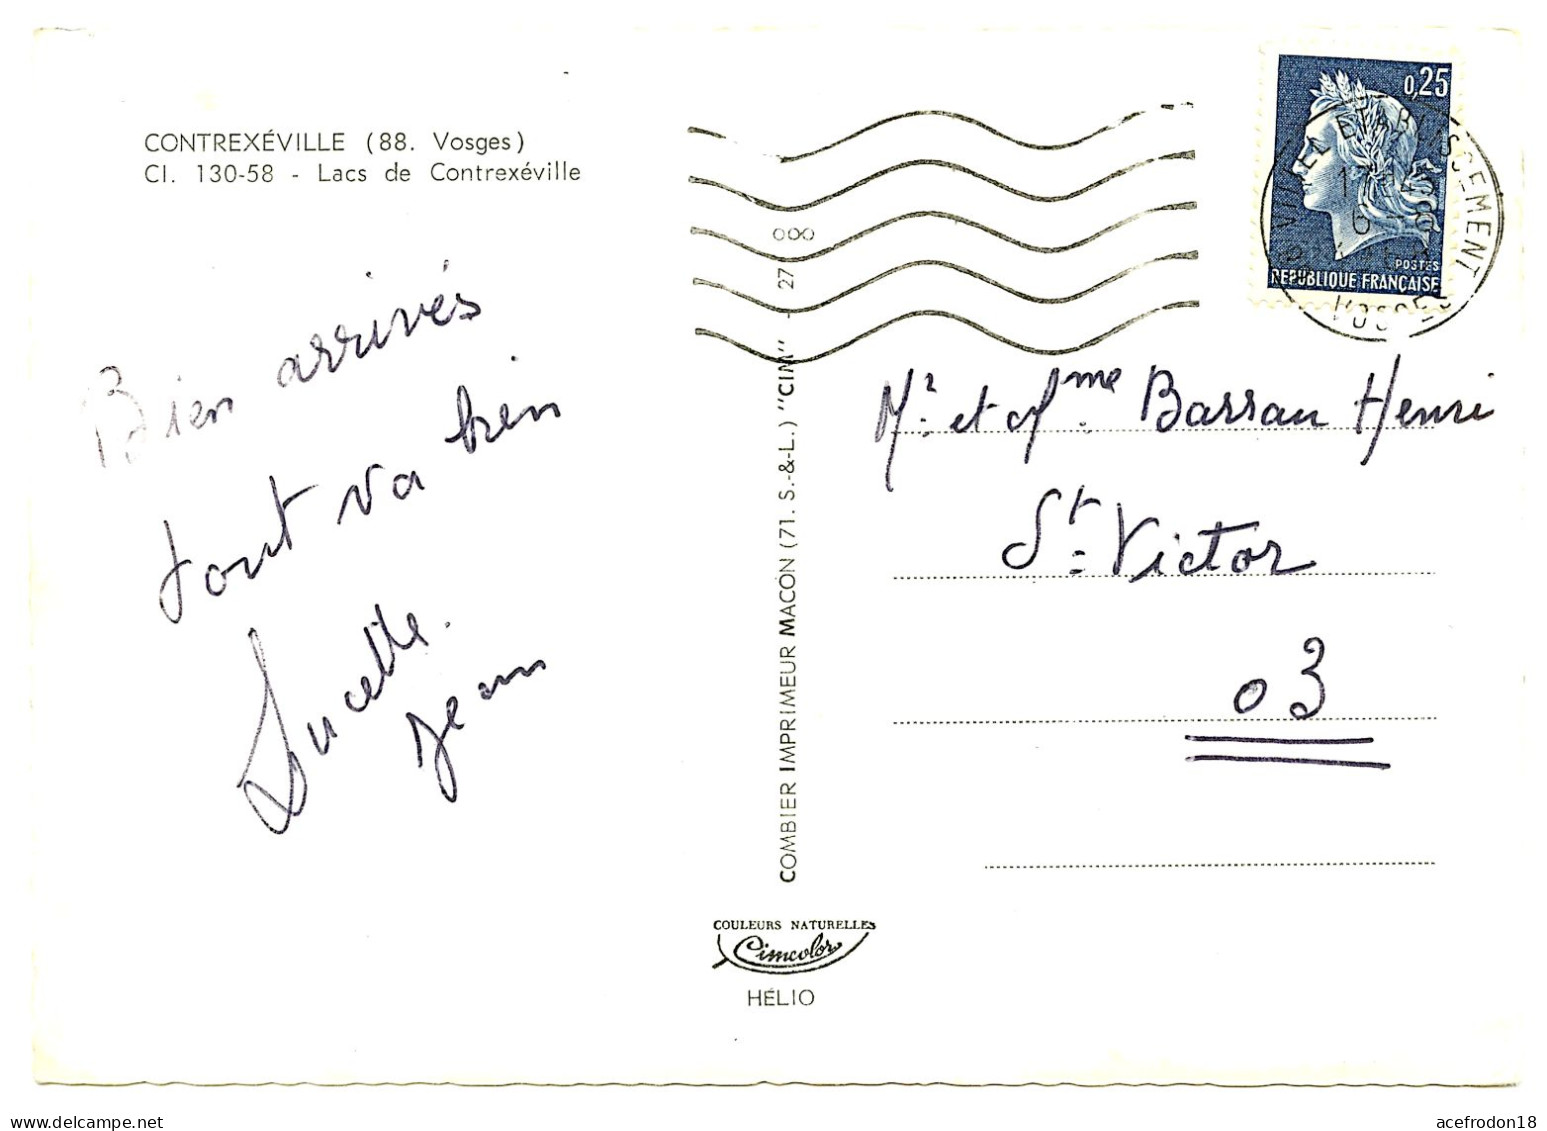 CONTREXÉVILLE (88. Vosges)
CI. 130-58 - Lacs de Contrexéville
Bien arrivés
tout va bien
Lucette.
Jean
COMBIER IMPRIMEUR MACON (71. S.-&-L.) "CIM" - 27
COULEURS NATURELLES
Cimcolor
HÉLIO
0,25
POSTES
REPUBLIQUE FRANÇAISE
VITTEL ETABLISSEMENT
VOSGES
Mr. et Mme. Barrau Henri
St. Victor
03
www.delcampe.net
acefrodon18